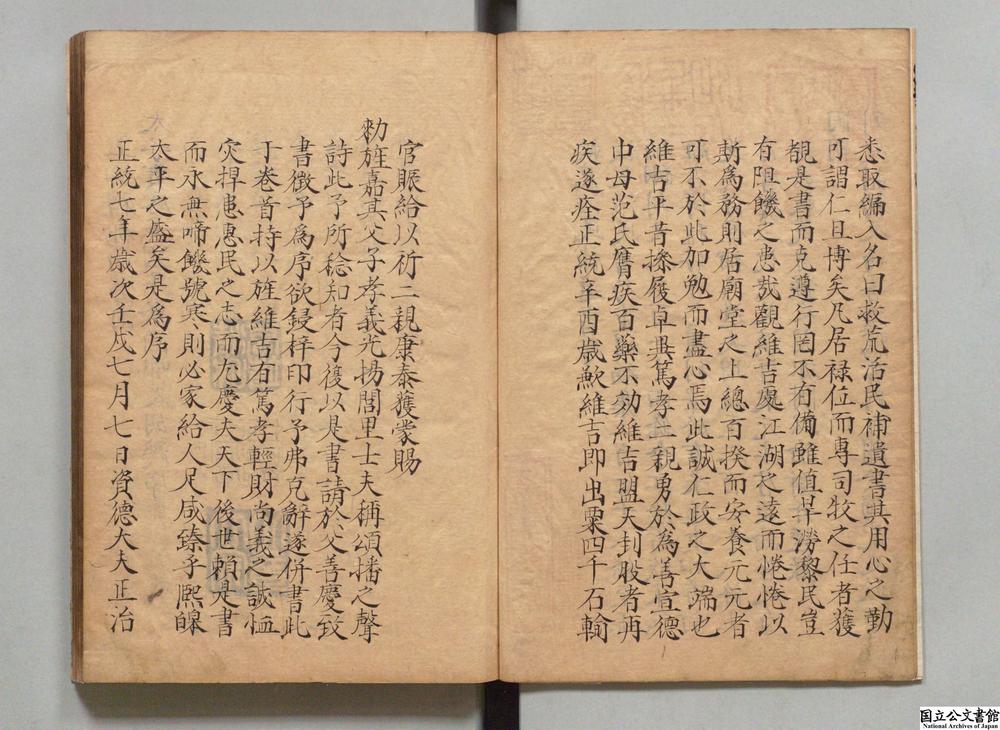 悉取編入名曰救荒治民補遺書其用心之勤
可謂仁且博矣凡居禄位而專司牧之任者獲
覩是書而克遵行罔不有備雖值旱澇黎民豈
有阻饑之患哉觀維吉處江湖之遠而惓惓以
斯為務則居廟堂之上總百揆而安養元元者
可不於此加勉而盡心焉此誠仁政之大端也
維吉平昔操履卓異篤孝二親勇於為善宣德
中母范氏膺疾百藥不効維吉盟天刲股者再
疾遂痊正統辛酉歲歉維吉即出粟四千石輸
官賑給以祈二親康泰獲蒙賜
勑旌嘉其父子孝義光揚閭里士夫稱頌播之聲
詩此予所稔知者今復以是書請於父善慶致
書徵予為序欲鋟梓印行予弗克辭遂併書此
于卷首持以旌維吉有篤孝輕財尚義之誠恤
灾捍患惠民之志而尢慶夫天下後世頼是書
而永無啼饑號寒則必家給人足咸臻乎熈皥
太平之盛矣是為序
正統七年歳次壬戌七月七日資德大夫正治
国立公文書館
National Archives of Japan